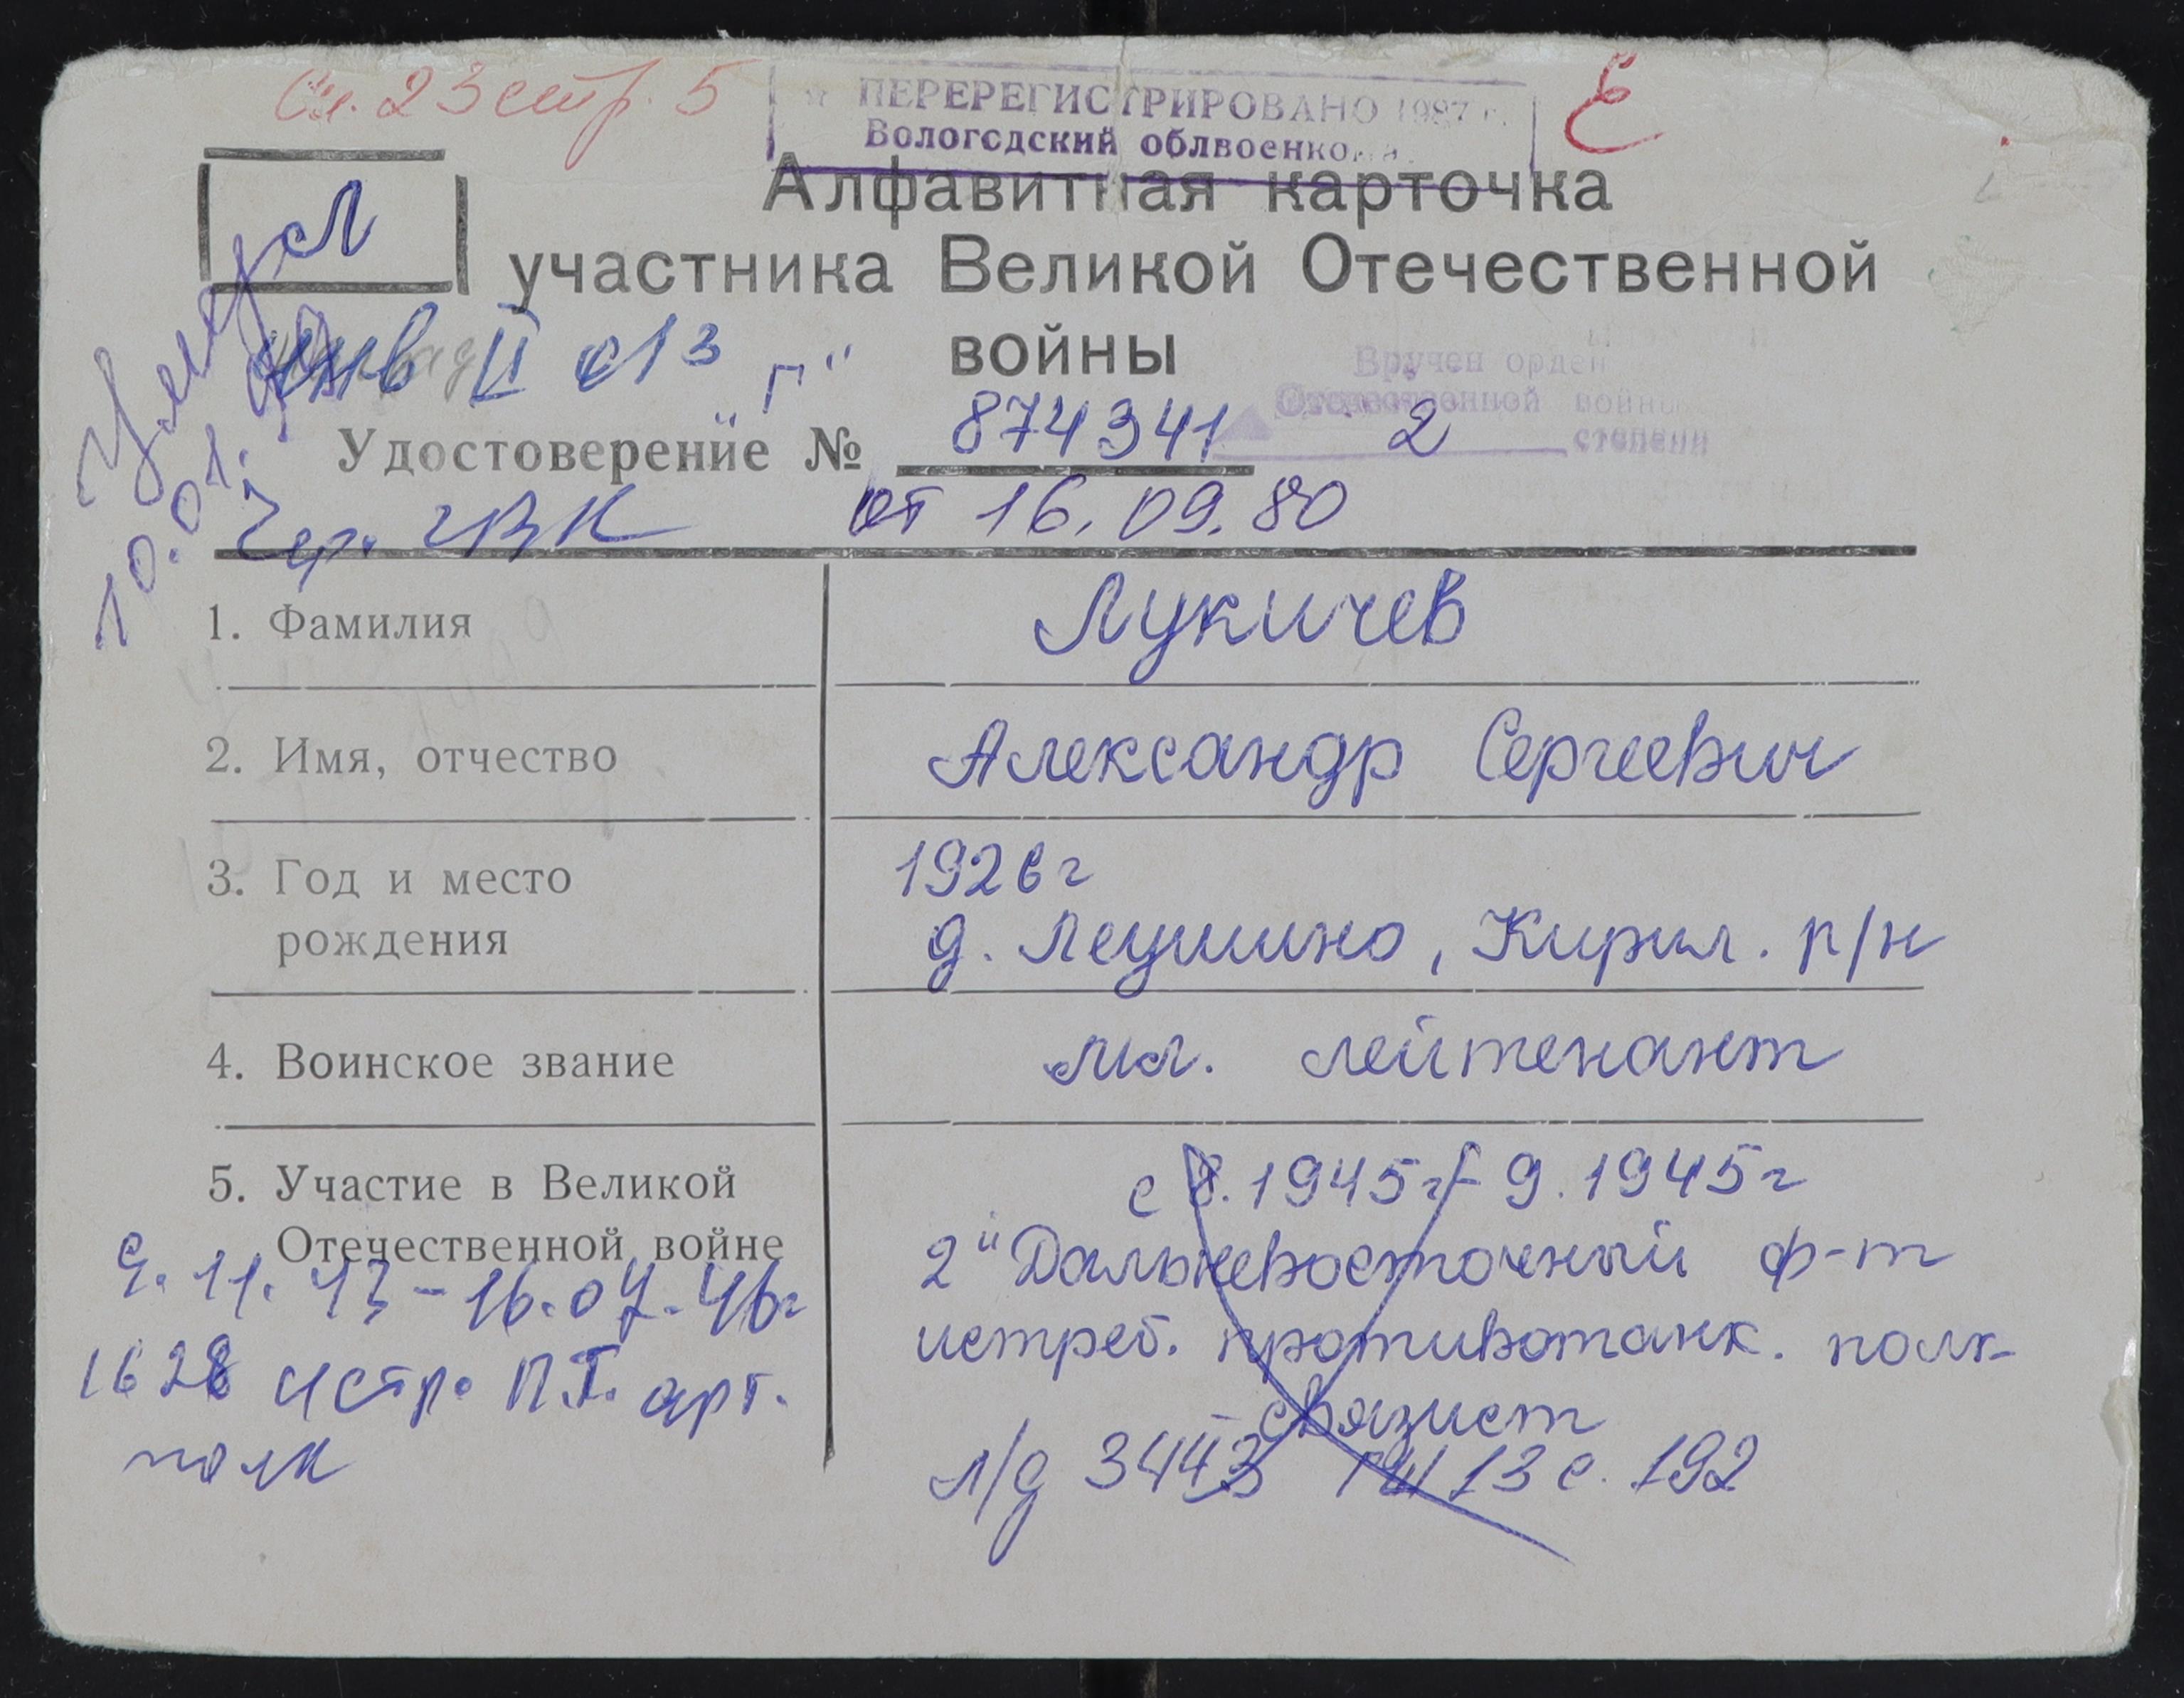 Сп. 23 стр. 5
ПЕРЕРЕГИСТРИРОВАНО 1987 г.
Вологодский облвоенком
Е
Л
Алфавитная карточка
участника Великой Отечественной
войны
Умер
10.01.
инв II
"Г"
Вручен орден
Отечественной войны
2 степени
Удостоверение № 874341
Чер. ГВК от 16.09.80
1. Фамилия Лукичев
2. Имя, отчество Александр Сергеевич
3. Год и место 1926 г
рождения д. Леушино, Кирил. р/н
4. Воинское звание мл. лейтенант
5. Участие в Великой с 8.1945г - 9.1945г
Отечественной войне 2й Дальневосточный ф-т
9.11.43 - 16.07.46г истреб. противотанк. полк
1628 истр. П.Т. арт. связист
полк л/д 3443 13 с. 192